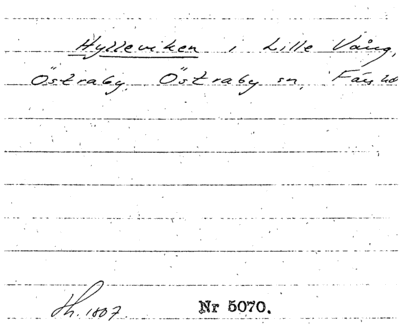 Hylleviken i Lille Vång,
Östraby. Östraby sn,
Sk. 1807 Nr 5070.